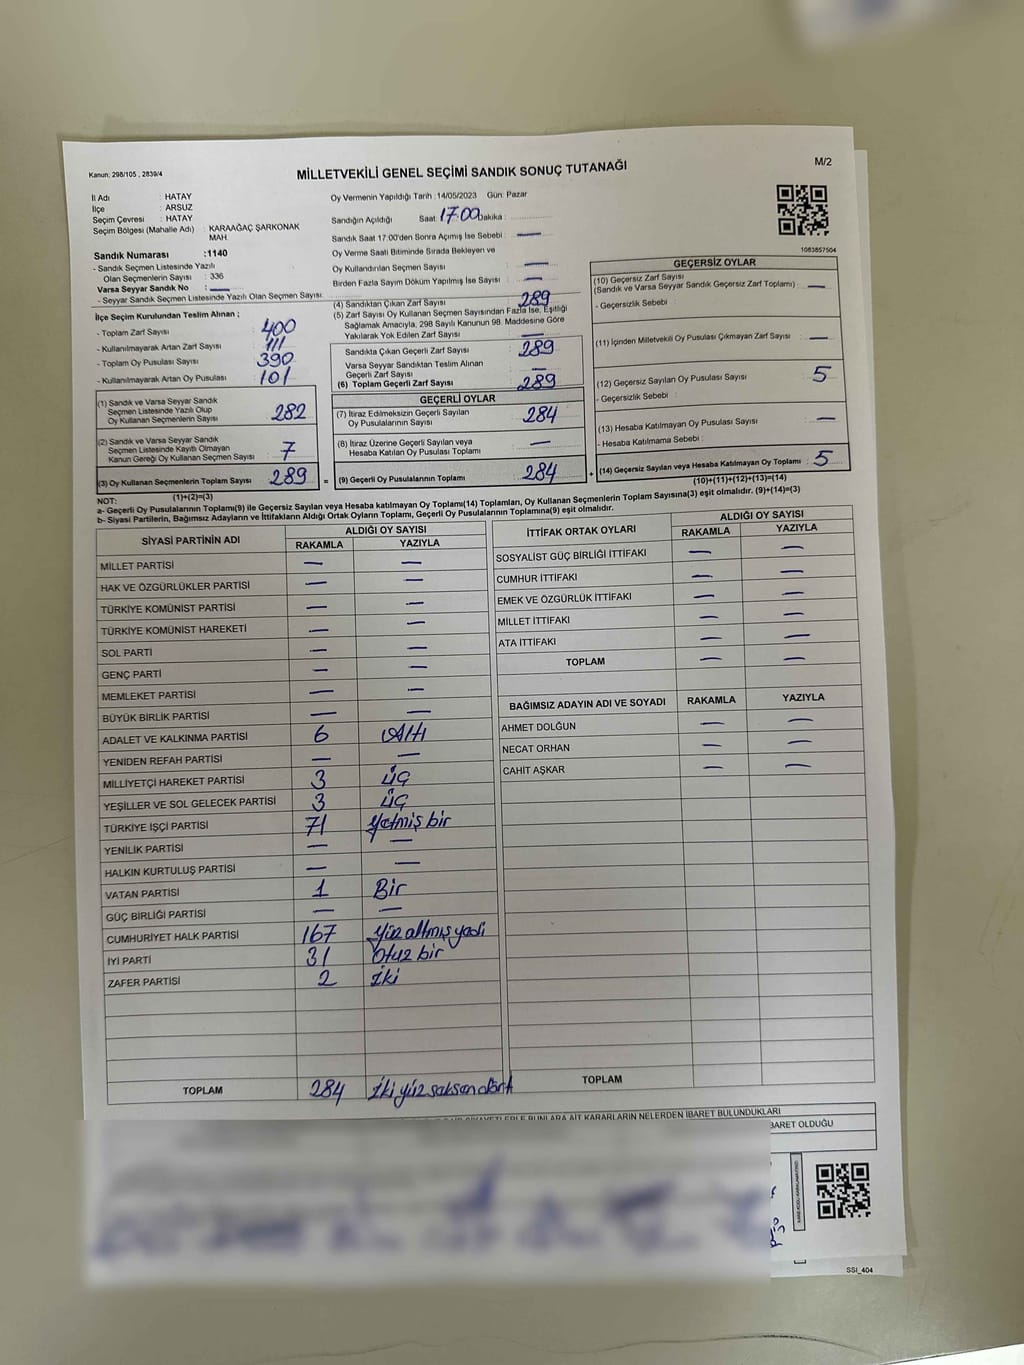 Kanun: 298/105 , 2839/4
MİLLETVEKİLİ GENEL SEÇİMİ SANDIK SONUÇ TUTANAĞI
M/2
İl Adı : HATAY
İlçe : ARSUZ
Seçim Çevresi : HATAY
Seçim Bölgesi (Mahalle Adı) : KARAAĞAÇ ŞARKONAK MAH
Sandık Numarası :1140
- Sandık Seçmen Listesinde Yazılı
Olan Seçmenlerin Sayısı : 336
Varsa Seyyar Sandık No : —
- Seyyar Sandık Seçmen Listesinde Yazılı Olan Seçmen Sayısı:
Oy Vermenin Yapıldığı Tarih :14/05/2023 Gün: Pazar
Sandığın Açıldığı Saat: 17.00 Dakika :
Sandık Saat 17:00'den Sonra Açımış İse Sebebi : —
Oy Verme Saati Bitiminde Sırada Bekleyen ve
Oy Kullandırılan Seçmen Sayısı : —
Birden Fazla Sayım Döküm Yapılmış İse Sayısı : —
1083857504
İlçe Seçim Kurulundan Teslim Alınan ;
- Toplam Zarf Sayısı : 400
- Kullanılmayarak Artan Zarf Sayısı : 111
- Toplam Oy Pusulası Sayısı : 390
- Kullanılmayarak Artan Oy Pusulası : 101
(1) Sandık ve Varsa Seyyar Sandık
Seçmen Listesinde Yazılı Olup
Oy Kullanan Seçmenlerin Sayısı : 282
(2) Sandık ve Varsa Seyyar Sandık
Seçmen Listesinde Kayıtlı Olmayan
Kanun Gereği Oy Kullanan Seçmen Sayısı : 7
(3) Oy Kullanan Seçmenlerin Toplam Sayısı : 289
(1)+(2)=(3)
(4) Sandıktan Çıkan Zarf Sayısı : 289
(5) Zarf Sayısı Oy Kullanan Seçmen Sayısından Fazla İse, Eşitliği
Sağlamak Amacıyla, 298 Sayılı Kanunun 98. Maddesine Göre
Yakılarak Yok Edilen Zarf Sayısı : —
Sandıkta Çıkan Geçerli Zarf Sayısı : 289
Varsa Seyyar Sandıktan Teslim Alınan
Geçerli Zarf Sayısı : —
(6) Toplam Geçerli Zarf Sayısı : 289
GEÇERLİ OYLAR
(7) İtiraz Edilmeksizin Geçerli Sayılan
Oy Pusulalarının Sayısı : 284
(8) İtiraz Üzerine Geçerli Sayılan veya
Hesaba Katılan Oy Pusulası Toplamı : —
= (9) Geçerli Oy Pusulalarının Toplamı : 284 +
GEÇERSİZ OYLAR
(10) Geçersiz Zarf Sayısı
(Sandık ve Varsa Seyyar Sandık Geçersiz Zarf Toplamı) : —
- Geçersizlik Sebebi :
(11) İçinden Milletvekili Oy Pusulası Çıkmayan Zarf Sayısı : —
(12) Geçersiz Sayılan Oy Pusulası Sayısı : 5
- Geçersizlik Sebebi :
(13) Hesaba Katılmayan Oy Pusulası Sayısı : —
- Hesaba Katılmama Sebebi :
(14) Geçersiz Sayılan veya Hesaba Katılmayan Oy Toplamı : 5
(10)+(11)+(12)+(13)=(14)
NOT:
a- Geçerli Oy Pusulalarının Toplamı(9) ile Geçersiz Sayılan veya Hesaba katılmayan Oy Toplamı(14) Toplamları, Oy Kullanan Seçmenlerin Toplam Sayısına(3) eşit olmalıdır. (9)+(14)=(3)
b- Siyasi Partilerin, Bağımsız Adayların ve İttifakların Aldığı Ortak Oyların Toplamı, Geçerli Oy Pusulalarının Toplamına(9) eşit olmalıdır.
SİYASİ PARTİNİN ADI ALDIĞI OY SAYISI
RAKAMLA YAZIYLA
MİLLET PARTİSİ — —
HAK VE ÖZGÜRLÜKLER PARTİSİ — —
TÜRKİYE KOMÜNİST PARTİSİ — —
TÜRKİYE KOMÜNİST HAREKETİ — —
SOL PARTİ — —
GENÇ PARTİ — —
MEMLEKET PARTİSİ — —
BÜYÜK BİRLİK PARTİSİ — —
ADALET VE KALKINMA PARTİSİ 6 Altı
YENİDEN REFAH PARTİSİ — —
MİLLİYETÇİ HAREKET PARTİSİ 3 üç
YEŞİLLER VE SOL GELECEK PARTİSİ 3 üç
TÜRKİYE İŞÇİ PARTİSİ 71 yetmiş bir
YENİLİK PARTİSİ — —
HALKIN KURTULUŞ PARTİSİ — —
VATAN PARTİSİ 1 Bir
GÜÇ BİRLİĞİ PARTİSİ — —
CUMHURİYET HALK PARTİSİ 167 yüz altmış yedi
İYİ PARTİ 31 otuz bir
ZAFER PARTİSİ 2 iki
TOPLAM 284 iki yüz seksen dört
İTTİFAK ORTAK OYLARI ALDIĞI OY SAYISI
RAKAMLA YAZIYLA
SOSYALİST GÜÇ BİRLİĞİ İTTİFAKI — —
CUMHUR İTTİFAKI — —
EMEK VE ÖZGÜRLÜK İTTİFAKI — —
MİLLET İTTİFAKI — —
ATA İTTİFAKI — —
TOPLAM — —
BAĞIMSIZ ADAYIN ADI VE SOYADI RAKAMLA YAZIYLA
AHMET DOLĞUN — —
NECAT ORHAN — —
CAHİT AŞKAR — —
TOPLAM
KARARLARIN NELERDEN İBARET BULUNDUKLARI
OLDUĞU
SSI_404